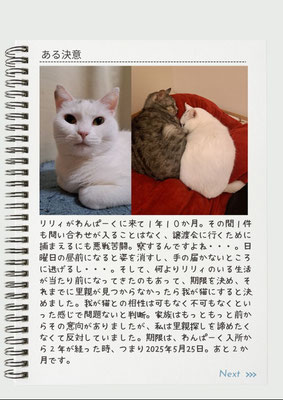 ある決意
リリィがわんぱーくに来て1年10か月。その間1件
も問い合わせが入ることはなく、譲渡会に行くために
捕まえるにも悪戦苦闘。察するんですよね・・・。日
曜日の昼前になると姿を消し、手の届かないところ
に逃げるし・・・。そして、何よりリリィのいる生活
が当たり前になってきたのもあって、期限を決め、そ
れまでに里親が見つからなかったら我が猫にすると決
めました。我が猫との相性は可もなく不可もなくとい
った感じで問題ないと判断。家族はもっともっと前か
らその意向がありましたが、私は里親探しを諦めたく
なくて反対していました。期限は、わんぱーく入所か
ら2年が経った時、つまり2025年5月25日。あと2か
月です。
Next >>>